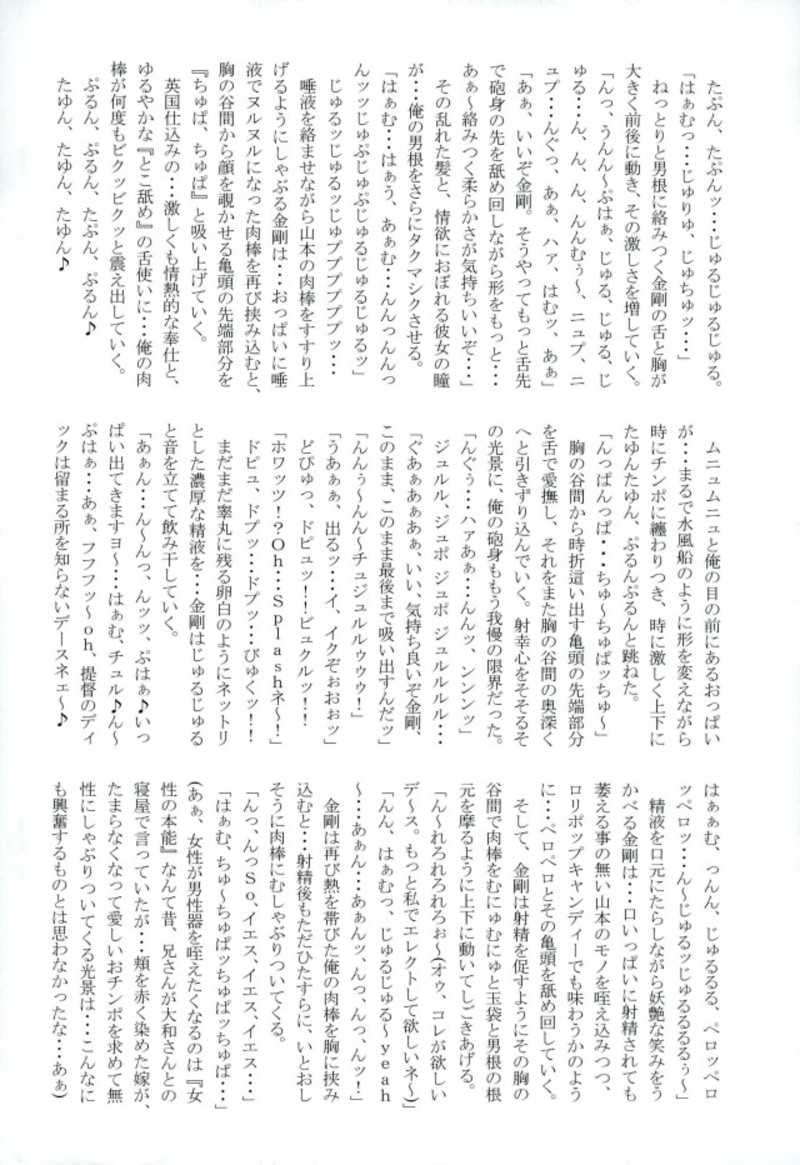 たぷん、たぷんッ・・・じゅるじゅるじゅる。
「はぁむっ・・・じゅりゅ、じゅちゅッ・・・」
ねっとりと男根に絡みつく金剛の舌と胸が
大きく前後に動き、その激しさを増していく。
「んっ、うんん〜ぷはぁ、じゅる、じゅる、じ
ゅる・・・ん、ん、ん、んんむぅ〜、ニュプ、ニ
ュプ・・・んぐっ、あぁ、ハァ、はむッ、あぁ」
「あぁ、いいぞ金剛。そうやってもっと舌先
で砲身の先を舐め回しながら形をもっと・・・
あぁ〜絡みつく柔らかさが気持ちいいぞ・・・」
その乱れた髪と、情欲におぼれる彼女の瞳
が・・・俺の男根をさらにタクマシクさせる。
「はぁむ・・・はぁう、あぁむ・・・んんっんんっ
んッッじゅぷじゅぷじゅるじゅるじゅるッ」
じゅるッじゅるッじゅプププププッ・・・
唾液を絡ませながら山本の肉棒をすすり上
げるようにしゃぶる金剛は・・・おっぱいに唾
液でヌルヌルになった肉棒を再び挟み込むと、
胸の谷間から顔を覗かせる亀頭の先端部分を
『ちゅぱ、ちゅぱ』と吸い上げていく。
英国仕込みの・・・激しくも情熱的な奉仕と、
ゆるやかな『とこ舐め』の舌使いに・・・俺の肉
棒が何度もビクッビクッと震え出していく。
ぷるん、ぷるん、たぷん、ぷるん♪
たゆん、たゆん、たゆん♪
ムニュムニュと俺の目の前にあるおっぱい
が・・・まるで水風船のように形を変えながら
時にチンポに纏わりつき、時に激しく上下に
たゆんたゆん、ぷるんぷるんと跳ねた。
「んっぱんっぱ・・・ちゅ〜ちゅぱッちゅ〜」
胸の谷間から時折這い出す亀頭の先端部分
を舌で愛撫し、それをまた胸の谷間の奥深く
へと引きずり込んでいく。射幸心をそそるそ
の光景に、俺の砲身ももう我慢の限界だった。
「んぐぅ・・・ハァあぁ・・・んんッ、ンンンッ」
ジュルル、ジュポ ジュポ ジュルルルル・・・
「ぐあぁあぁあぁ、いい、気持ち良いぞ金剛、
このまま、このまま最後まで吸い出すんだッ」
「んんぅ〜んん〜チュジュルルゥゥゥ！」
「うあぁぁ、出るッ・・・イ、イクぞぉおぉッ」
どぴゅっ、ドピュッ！！ビュクルッ！！！
「ホワッツ！？Oh・・・Splashネ〜！」
ドピュ、ドプッ・・・ドプッ・・・びゅくッ！！！
まだまだ睾丸に残る卵白のようにネットリ
とした濃厚な精液を・・・金剛はじゅるじゅる
と音を立てて飲み干していく。
「あぁん・・・ん〜んっ、んッッ、ぷはぁ♪いっ
ぱい出てきますヨ〜・・・はぁむ、チュル♪ん〜
ぷはぁ・・・あぁ、フフフッ〜oh、提督のディ
ックは留まる所を知らないデースネェ〜♪
はぁぁむ、つんん、じゅるるる、ペロッペロ
ッペロッ・・・ん〜じゅるッじゅるるるるぅ〜」
精液を口元にたらしながら妖艶な笑みをう
かべる金剛は・・・口いっぱいに射精されても
萎える事の無い山本のモノを咥え込みつつ、
ロリポップキャンディーでも味わうかのよう
に・・・ペロペロとその亀頭を舐め回していく。
そして、金剛は射精を促すようにその胸の
谷間で肉棒をむにゅむにゅと玉袋と男根の根
元を摩るように上下に動いてしごきあげる。
「ん〜れろれろれろぉ〜(オゥ、コレが欲しい
デース。もっと私でエレクトして欲しいネ〜)」
「んん、はぁむっ、じゅるじゅる〜yeah
〜・・・あぁん・・・あぁんッ、んっ、んっ、んッ！」
金剛は再び熱を帯びた俺の肉棒を胸に挟み
込むと・・・射精後もただひたすらに、いとおし
そうに肉棒にむしゃぶりついてくる。
「んっ、んっSo、イエス、イエス、イエス・・・」
「はぁむ、ちゅ〜ちゅぱッちゅぱッちゅぱ・・・」
(あぁ、女性が男性器を咥えたくなるのは『女
性の本能』なんて昔、兄さんが大和さんとの
寝屋で言っていたが・・・頬を赤く染めた嫁が、
たまらなくなって愛しいおチンポを求めて無
性にしゃぶりついてくる光景は・・・こんなに
も興奮するものとは思わなかったな・・・あぁ)